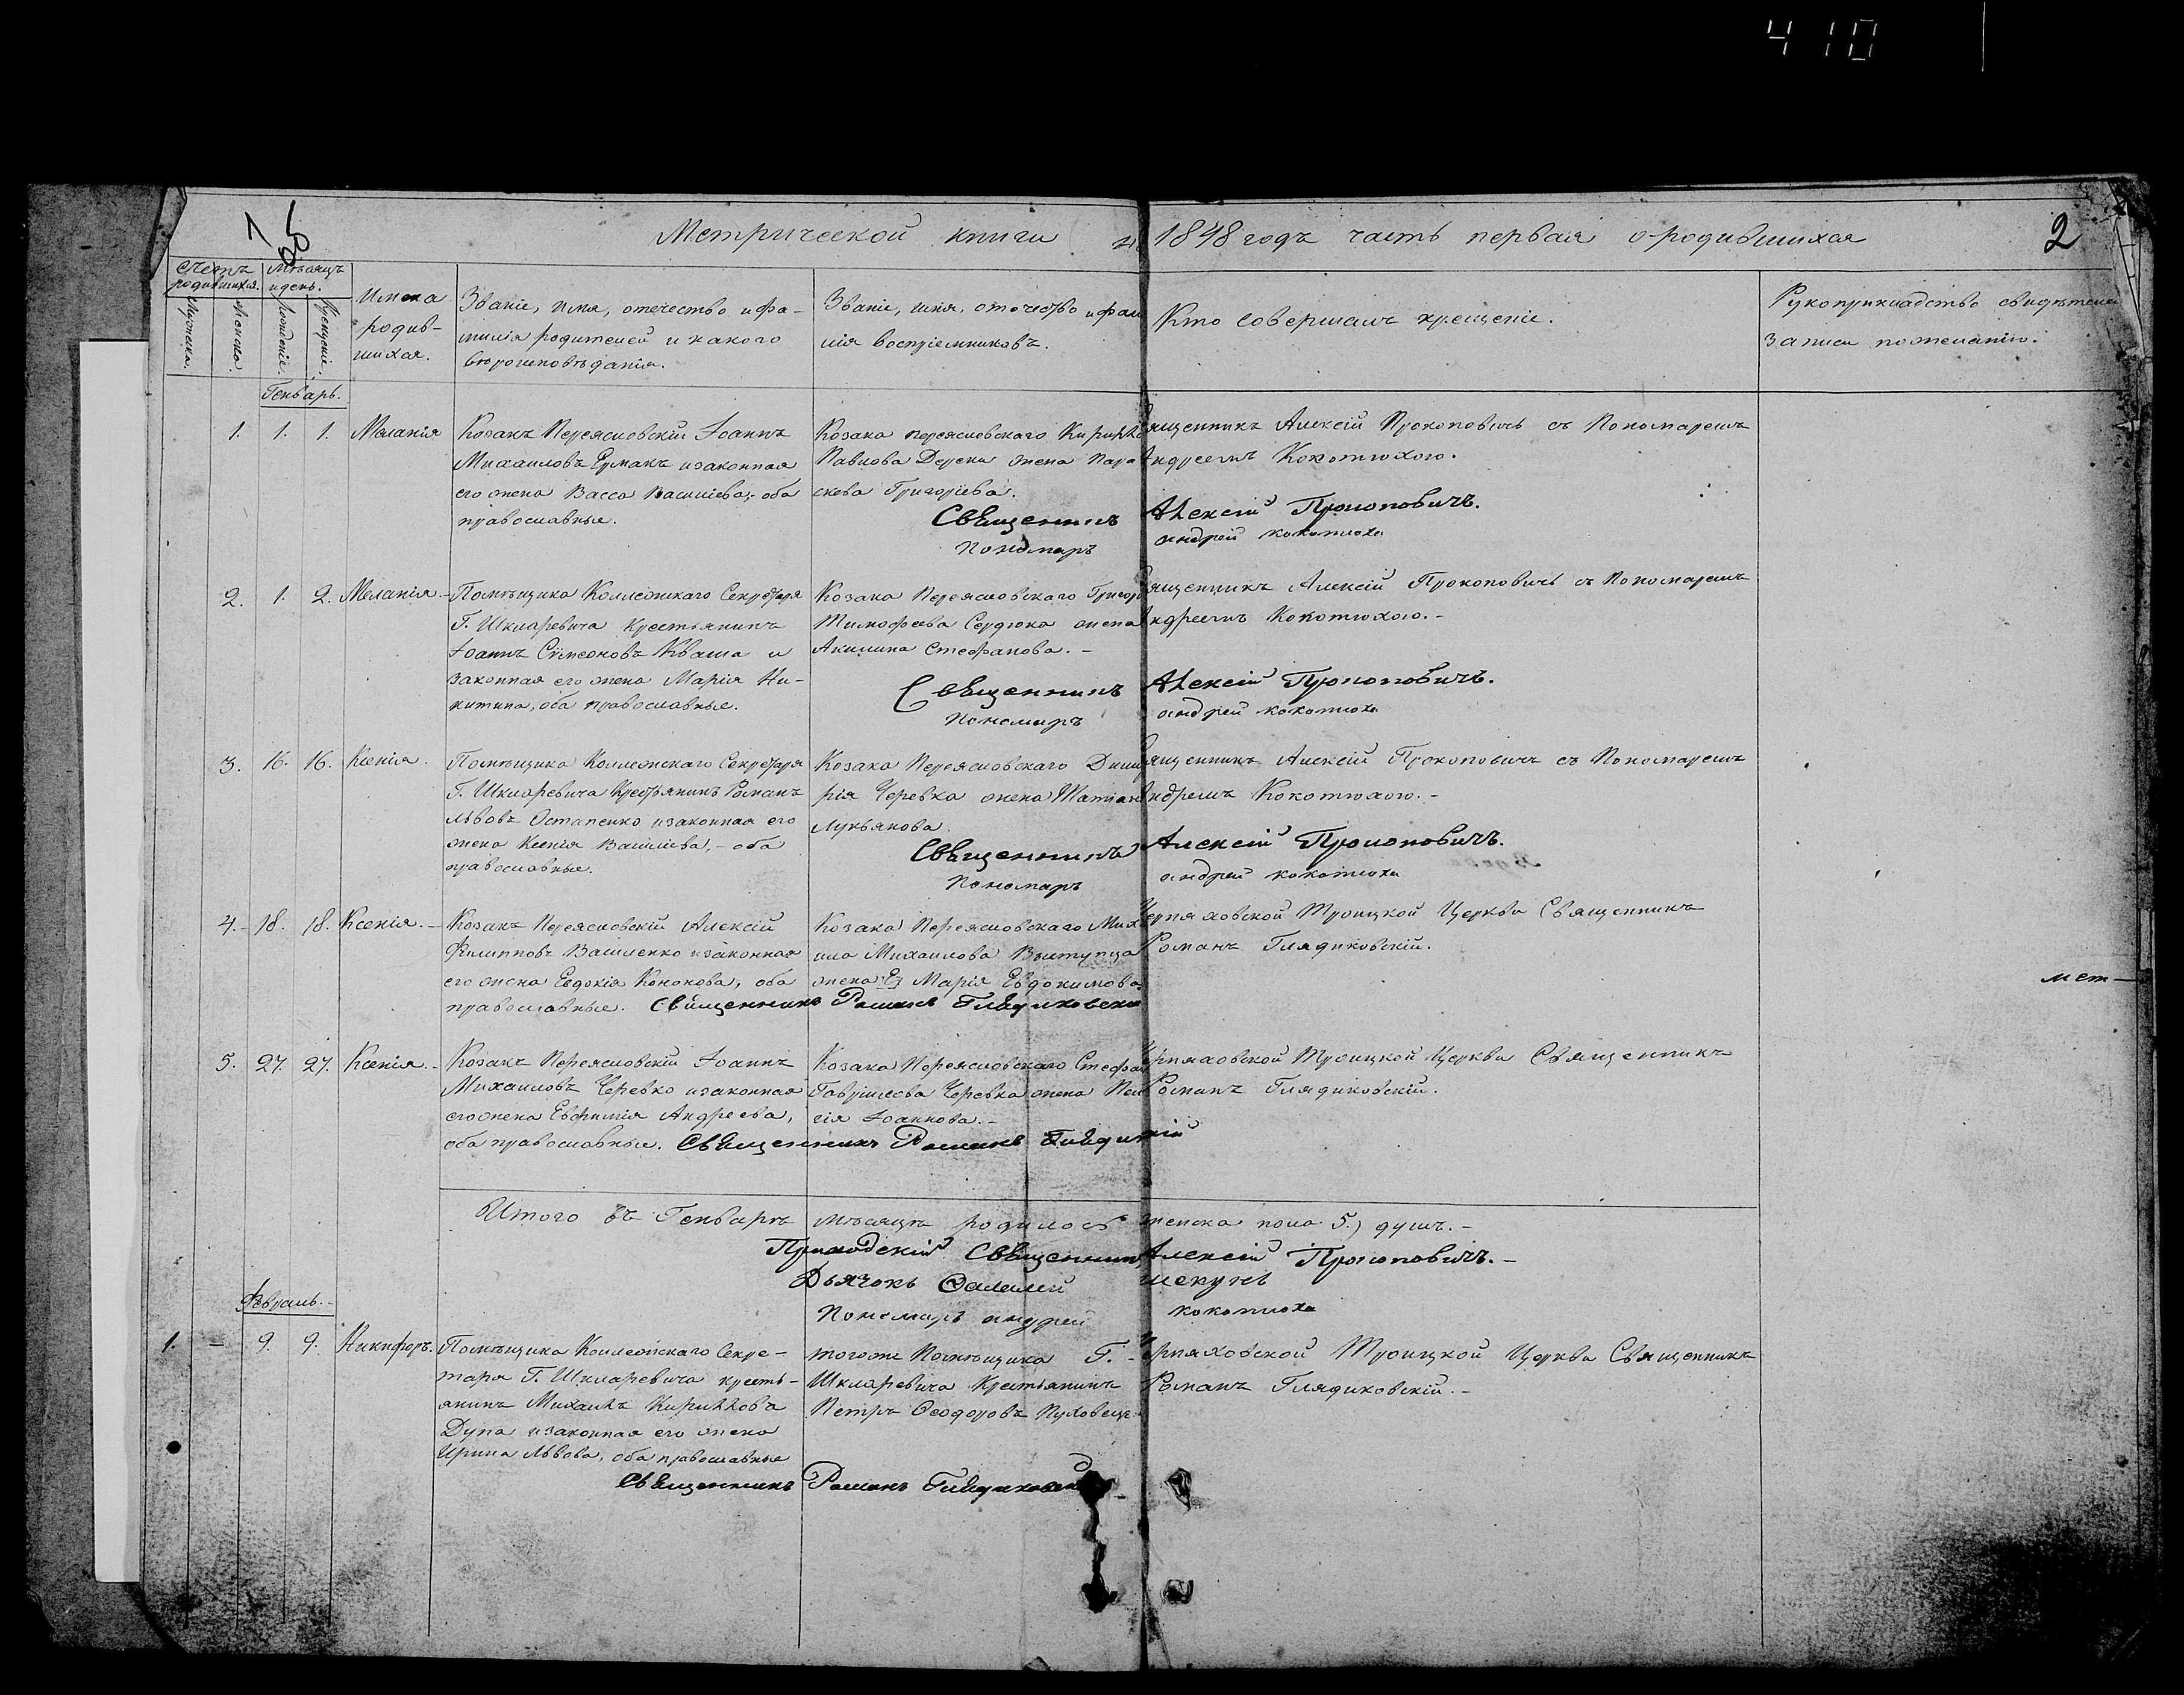 410
1
2
Метрической книги на 1848 годъ часть первая о родившихся
Счетъ родившихся.
Мужеска.
Женска.
Мѣсяцъ и день.
Рожденіе.
Крещеніе.
Имена
родив-
шихся.
Званіе, имя, отечество и фа-
милія родителей и какого
вѣроисповѣданія.
Званіе, имя, отечество и фами
лія воспріемниковъ.
Кто совершалъ крещеніе.
Рукоприкладство свидѣтелей
записи по желанію.
Генварь.
1. 1. 1. Меланія
Козакъ Переясловскій Іоаннъ
Михаиловъ Ермакъ и законная
его жена Васса Василіева, оба
православные.
Козака Переясловскаго Кирилла
Павлова Дереки жена Пара
скева Григоріева.
Священникъ Алексій Прокоповичъ съ Пономаремъ
Андреемъ Кокотюхою.
Священникъ Алексій Прокоповичъ.
Пономаръ андрей кокотюха
2. 1. 2. Меланія.
Помѣщика Коллежскаго Секретаря
Г. Шкларевича Крестьянинъ
Іоаннъ Сѵмеоновъ Кваша и
законная его жена Марія Ни-
китина, оба православные.
Козака Переясловскаго Григор
Тимофеева Сердюка жена
Акилина Стефанова. -
Священникъ Алексій Прокоповичъ съ Пономаремъ
Андреемъ Кокотюхою. -
Священникъ Алексій Прокоповичъ.
Пономаръ андрей кокотюха
3. 16. 16. Ксенія.
Помѣщика Коллежскаго Секретаря
Г. Шкларевича Крестьянинъ Романъ
Львовъ Остапенко и законная его
жена Ксенія Василіева, - оба
православные.
Козака Переясловскаго Дими
рія Черевка жена Татіан
Лукьянова.
Священникъ Алексій Прокоповичъ съ Пономаремъ
Андреемъ Кокотюхою. -
Священникъ Алексій Прокоповичъ.
Пономаръ андрей кокотюха
4. - 18. 18. Ксенія. -
Козакъ Переясловскій Алексій
Филипповъ Василенко и законная
его жена Евдокія Кононова, оба
православные.
Козака Переясловскаго Миха
ила Михаилова
жена Марія Евдокимова
Черняховской Троицкой Церкви Священникъ
Романъ Глядиковскій.
Священникъ Романъ Глядиковскій
мет-
5. 27. 27. Ксенія. -
Козакъ Переясловскій Іоаннъ
Михаиловъ Черевко и законная
его жена Евфимія Андреева,
оба православные.
Козака Переясловскаго Стефан
Гавриилова Черевка жена Пел
гія Іоаннова. -
Черняховской Троицкой Церкви Священникъ
Романъ Глядиковскій.
Священникъ Романъ
Итого въ Генварѣ мѣсяцѣ родилось женска пола 5.) душъ. -
Приходскій Священникъ Алексій Прокоповичъ. -
Дьячокъ
Пономаръ андрей кокотюха
Февраль. -
1. - 9. 9. Никифоръ.
Помѣщика Коллежскаго Секре-
таря Г. Шкларевича кресть-
янинъ Михаилъ Кирилловъ
Дупа и законная его жена
Ирина Львова, оба православные
тогоже Помѣщика Г. -
Шкларевича Крестьянинъ
Петръ Ѳеодоровъ
Черняховской Троицкой Церкви Священникъ
Романъ Глядиковскій. -
Священникъ Романъ Глядиковскій